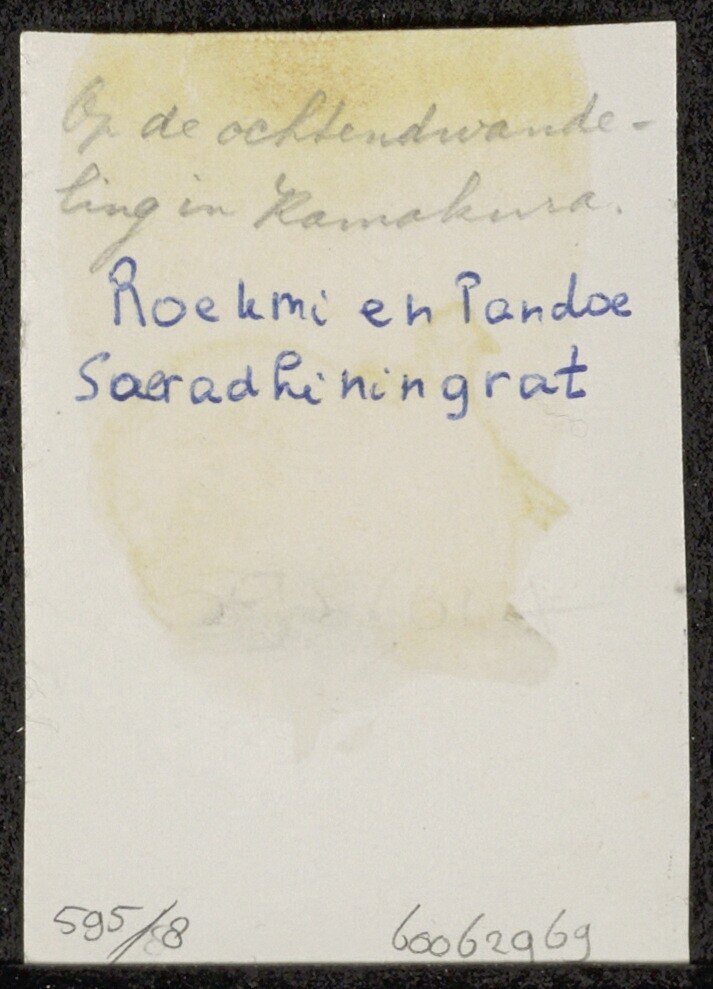 Op de ochtendwande-
ling in Kamakura.
Roekmi en Pandoe
Soeradhiningrat
595/8
60062969